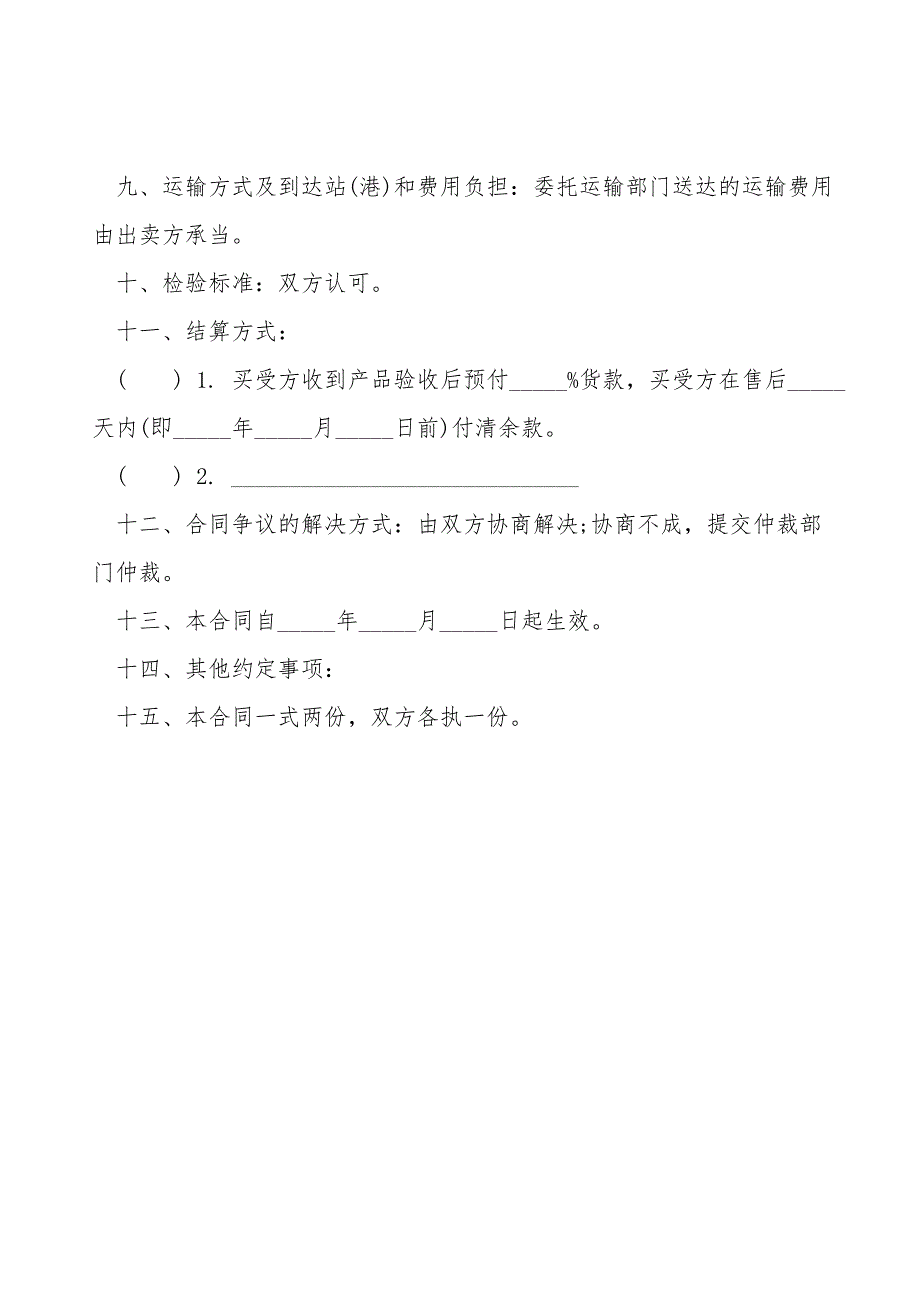 九、运输方式及到达站(港)和费用负担：委托运输部门送达的运输费用
由出卖方承当。
十、检验标准：双方认可。
十一、结算方式：
(　　) 1. 买受方收到产品验收后预付_____%货款，买受方在售后_____
天内(即_____年_____月_____日前)付清余款。
(　　) 2. ______________________________
十二、合同争议的解决方式：由双方协商解决;协商不成，提交仲裁部
门仲裁。
十三、本合同自_____年_____月_____日起生效。
十四、其他约定事项：
十五、本合同一式两份，双方各执一份。